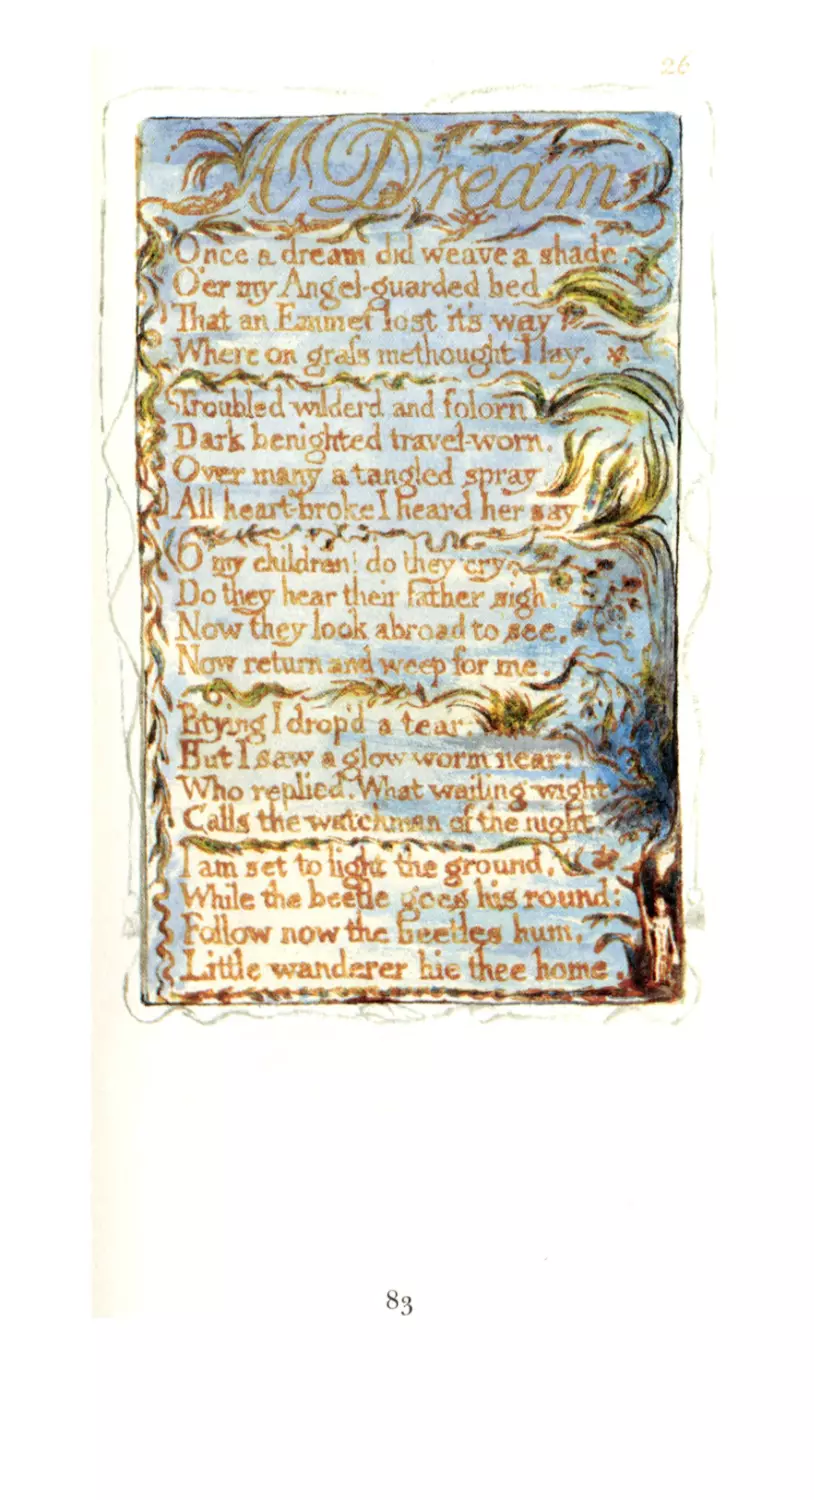 26
A Dream
Once a dream did weave a shade,
O'er my Angel-guarded bed,
That an Emmet lost it's way
Where on grass methought I lay.
Troubled wilderd and folorn
Dark benighted travel-worn.
Over many a tangled spray
All heart-broke I heard her say
O my children! do they cry
Do they hear their father sigh.
Now they look abroad to see.
Now return and weep for me.
Pitying I drop'd a tear:
But I saw a glow-worm near:
Who replied. What wailing wight
Calls the watchman of the night.
I am set to light the ground,
While the beetle goes his round:
Follow now the beetles hum.
Little wanderer hie thee home.
83